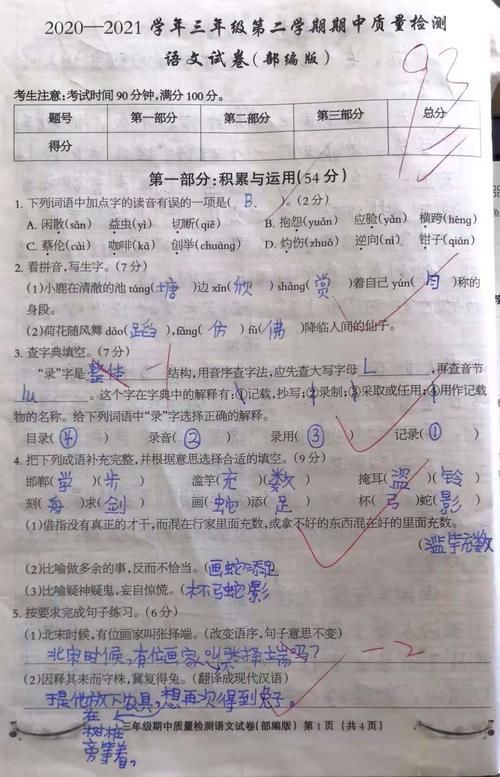 2020—2021 学年三年级第二学期期中质量检测
语文试卷(部编版)
93
考生注意:考试时间 90 分钟,满分 100 分。
题号 第一部分 第二部分 第三部分 总分
得分
第一部分:积累与运用(54 分)
1. 下列词语中加点字的读音有误的一项是( B. )。(2 分)
A. 闲散(sǎn) 益虫(yì) 切断(qiē) B. 抱怨(yuàn) 应验(yàn) 横跨(héng)
C. 蔡伦(cài) 咖啡(kā) 创举(chuàng) D. 灼伤(zhuó) 逆向(nì) 钳子(qián)
2. 看拼音,写生字。(7 分)
(1)小鹿在清澈的池 táng(塘)边 xīn(欣) shǎng(赏)着自己 yún(匀)称的
身段。
(2)荷花随风舞 dǎo(蹈),fǎng(仿) fú(佛)降临人间的仙子。
3. 查字典填空。(7 分)
“录”字是 整体 结构,用音序查字法,应先查大写字母 L ,再查音节 -1
lu 。这个字在字典中的解释有:①记载,抄写;②录制;③采取或任用;④用作记载
物的名称。给下列词语中“录”字选择正确的解释。
目录(④) 录音(②) 录用(③) 记录(①)
4. 把下列成语补充完整,并根据意思选择合适的填空。(9 分)
邯郸(学)步 滥竽(充)(数) 掩耳(盗)(铃)
刻(舟)求(剑) 画(蛇)添(足) 杯(弓)蛇(影)
(1)借指没有真正的才干,而混在行家里面充数,或拿不好的东西混在好的里面充数。
(滥竽充数)
(2)比喻做多余的事,反而不恰当。(画蛇添足)
(3)比喻疑神疑鬼,妄自惊慌。(杯弓蛇影)
5. 按要求完成句子练习。(6 分)
(1)北宋时候,有位画家叫张择端。(改变语序,句子意思不变)
北宋时候,有位画家叫张择端吗? -2
(2)因释其耒而守株,冀复得兔。(翻译成现代汉语)
于是他放下农具,想再次得到兔子。
在
树桩
旁等着,
三年级期中质量检测语文试卷(部编版) 第 1 页 (共 4 页)